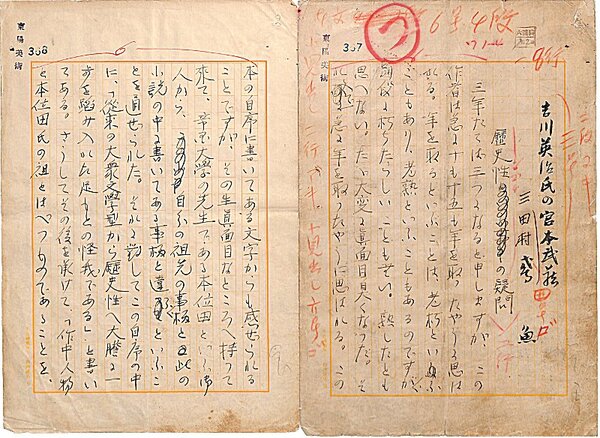 東陽英術 367
吉川英治氏の宮本武蔵
三田村 鳶魚
歴史性の疑問
三年たてば三つになると申しますが、この
作者は急に十も十五も年を取ったやうに思は
れる。年を取るといふことは、老朽といふ
こともあり、老熟といふこともあるのですが、
朽ちたらしいこともない。熟したとも
思へない。たゞ大変真面目臭くなった。そ
れ故急に年を取ったやうに思はれる。この
東陽英術 368
本の自序に書いてある文字からも感ぜられる
ことですが、その生真面目なところへ持って
来て、大学の先生である本位田といふ御
人から、自分の祖先の事柄と此の
小説の中に書いてある事柄と違ふといふこ
とを通ぜられた。それに対してこの自序の中
に「従来の大衆文学型から歴史性へ大胆に一
歩を踏み入れた足もとの怪我である」と書い
てある。さうしてその後を承けて、「作中人物
と本位田氏の祖とはべつものであることを、